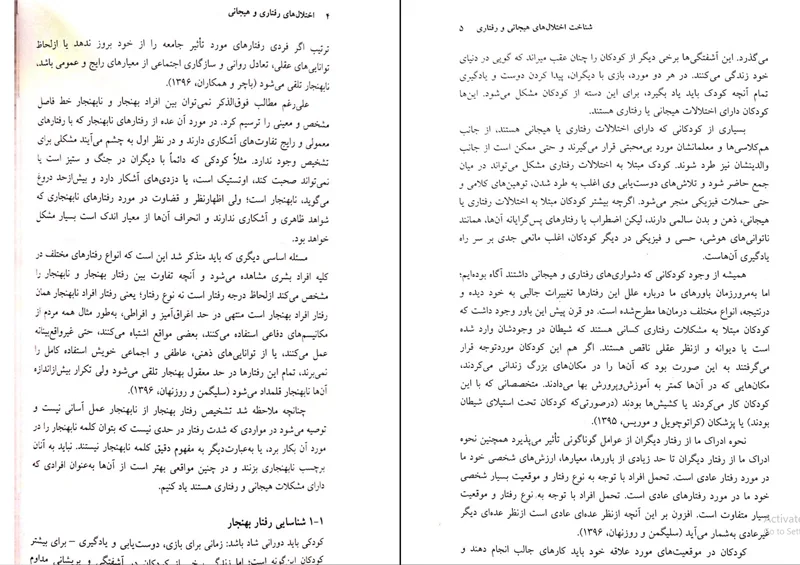 ۴ اختلال‌های رفتاری و هیجانی
ترتیب اگر فردی رفتارهای مورد تأثیر جامعه را از خود بروز ندهد یا ازلحاظ
توانایی‌های عقلی، تعادل روانی و سازگاری اجتماعی از معیارهای رایج و عمومی باشد،
نابهنجار تلقی می‌شود (باچر و همکاران، ۱۳۹۶).
علی‌رغم مطالب فوق‌الذکر نمی‌توان بین افراد بهنجار و نابهنجار خط فاصل
مشخص و معینی را ترسیم کرد. در مورد آن عده از رفتارهای نابهنجار که با رفتارهای
معمولی و رایج تفاوت‌های آشکاری دارند و در نظر اول به چشم می‌آیند مشکلی برای
تشخیص وجود ندارد. مثلاً کودکی که دائماً با دیگران در جنگ و ستیز است یا
نمی‌تواند صحبت کند، اوتستیک است، یا دزدی‌های آشکار دارد و بیش‌ازحد دروغ
می‌گوید، نابهنجار است؛ ولی اظهارنظر و قضاوت در مورد رفتارهای نابهنجاری که
شواهد ظاهری و آشکاری ندارند و انحراف آن‌ها از معیار اندک است بسیار مشکل
خواهد بود.
مسئله اساسی دیگری که باید متذکر شد این است که انواع رفتارهای مختلف در
کلیه افراد بشری مشاهده می‌شود و آنچه تفاوت بین رفتار بهنجار و نابهنجار را
مشخص می‌کند ازلحاظ درجه رفتار است نه نوع رفتار؛ یعنی رفتار افراد نابهنجار همان
رفتار افراد بهنجار است منتهی در حد اغراق‌آمیز و افراطی، به‌طور مثال همه مردم از
مکانیسم‌های دفاعی استفاده می‌کنند، بعضی مواقع اشتباه می‌کنند، حتی غیرواقع‌بینانه
عمل می‌کنند، یا از توانایی‌های ذهنی، عاطفی و اجماعی خویش استفاده کامل را
نمی‌برند، تمام این رفتارها در حد معقول بهنجار تلقی می‌شود ولی تکرار بیش‌ازاندازه
آن‌ها نابهنجار قلمداد می‌شود (سلیگمن و روزنهان، ۱۳۹۶).
چنانچه ملاحظه شد تشخیص رفتار بهنجار از نابهنجار عمل آسانی نیست و
توصیه می‌شود در مواردی که شدت رفتار در حدی نیست که بتوان کلمه نابهنجار را در
مورد آن بکار برد، یا به‌عبارت‌دیگر به مفهوم دقیق کلمه نابهنجار نیستند. نباید به آنان
برچسب نابهنجاری بزنند و در چنین مواقعی بهتر است از آن‌ها به‌عنوان افرادی که
دارای مشکلات هیجانی و رفتاری هستند یاد کنیم.
۱-۱ شناسایی رفتار بهنجار
کودکی باید دورانی شاد باشد: زمانی برای بازی، دوست‌یابی و یادگیری – برای بیشتر
شناخت اختلال‌های هیجانی و رفتاری ۵
می‌گذرد. این آشفتگی‌ها برخی دیگر از کودکان را چنان عقب میراند که گویی در دنیای
خود زندگی می‌کنند. در هر دو مورد، بازی با دیگران، پیدا کردن دوست و یادگیری
تمام آنچه کودک باید یاد بگیرد، برای این دسته از کودکان مشکل می‌شود. این‌ها
کودکان دارای اختلالات هیجانی یا رفتاری هستند.
بسیاری از کودکانی که دارای اختلالات رفتاری یا هیجانی هستند، از جانب
هم‌کلاسی‌ها و معلمانشان مورد بی‌محبتی قرار می‌گیرند و حتی ممکن است از جانب
والدینشان نیز طرد شوند. کودک مبتلا به اختلالات رفتاری مشکل می‌تواند در میان
جمع حاضر شود و تلاش‌های دوست‌یابی وی اغلب به طرد شدن، توهین‌های کلامی و
حتی حملات فیزیکی منجر می‌شود. اگرچه بیشتر کودکان مبتلا به اختلالات رفتاری یا
هیجانی، ذهن و بدن سالمی دارند، لیکن اضطراب یا رفتارهای پس‌گرایانه آن‌ها، همانند
ناتوانی‌های هوشی، حسی و فیزیکی در دیگر کودکان، اغلب مانعی جدی بر سر راه
یادگیری آن‌هاست.
همیشه از وجود کودکانی که دشواری‌های رفتاری و هیجانی داشتند آگاه بوده‌ایم؛
اما به‌مرورزمان باورهای ما درباره علل این رفتارها تغییرات جالبی به خود دیده و
درنتیجه، انواع مختلف درمان‌ها مطرح‌شده است. دو قرن پیش این باور وجود داشت که
کودکان مبتلا به مشکلات رفتاری کسانی هستند که شیطان در وجودشان وارد شده
است یا دیوانه و ازنظر عقلی ناقص هستند. اگر هم این کودکان موردتوجه قرار
می‌گرفتند به این صورت بود که آن‌ها را در مکان‌های بزرگ زندانی می‌کردند،
مکان‌هایی که در آن‌ها کمتر به آموزش‌وپرورش بها می‌دادند. متخصصانی که با این
کودکان کار می‌کردند یا کشیش‌ها بودند (درصورتی‌که کودکان تحت استیلای شیطان
بودند) یا پزشکان (کراتوچویل و موریس، ۱۳۹۵).
نحوه ادراک ما از رفتار دیگران از عوامل گوناگونی تأثیر می‌پذیرد همچنین نحوه
ادراک ما از رفتار دیگران تا حد زیادی از باورها، معیارها، ارزش‌های شخصی خود ما
در مورد رفتار عادی است. تحمل افراد با توجه به نوع رفتار و موقعیت بسیار شخصی
خود ما در مورد رفتارهای عادی است. تحمل افراد با توجه به نوع رفتار و موقعیت
بسیار متفاوت است. افزون بر این آنچه ازنظر عده‌ای عادی است ازنظر عده‌ای دیگر
غیرعادی به‌شمار می‌آید (سلیگمن و روزنهان، ۱۳۹۶).
کودکان در موقعیت‌های مورد علاقه خود باید کارهای جالب انجام دهند و
Activate
Go to Sett